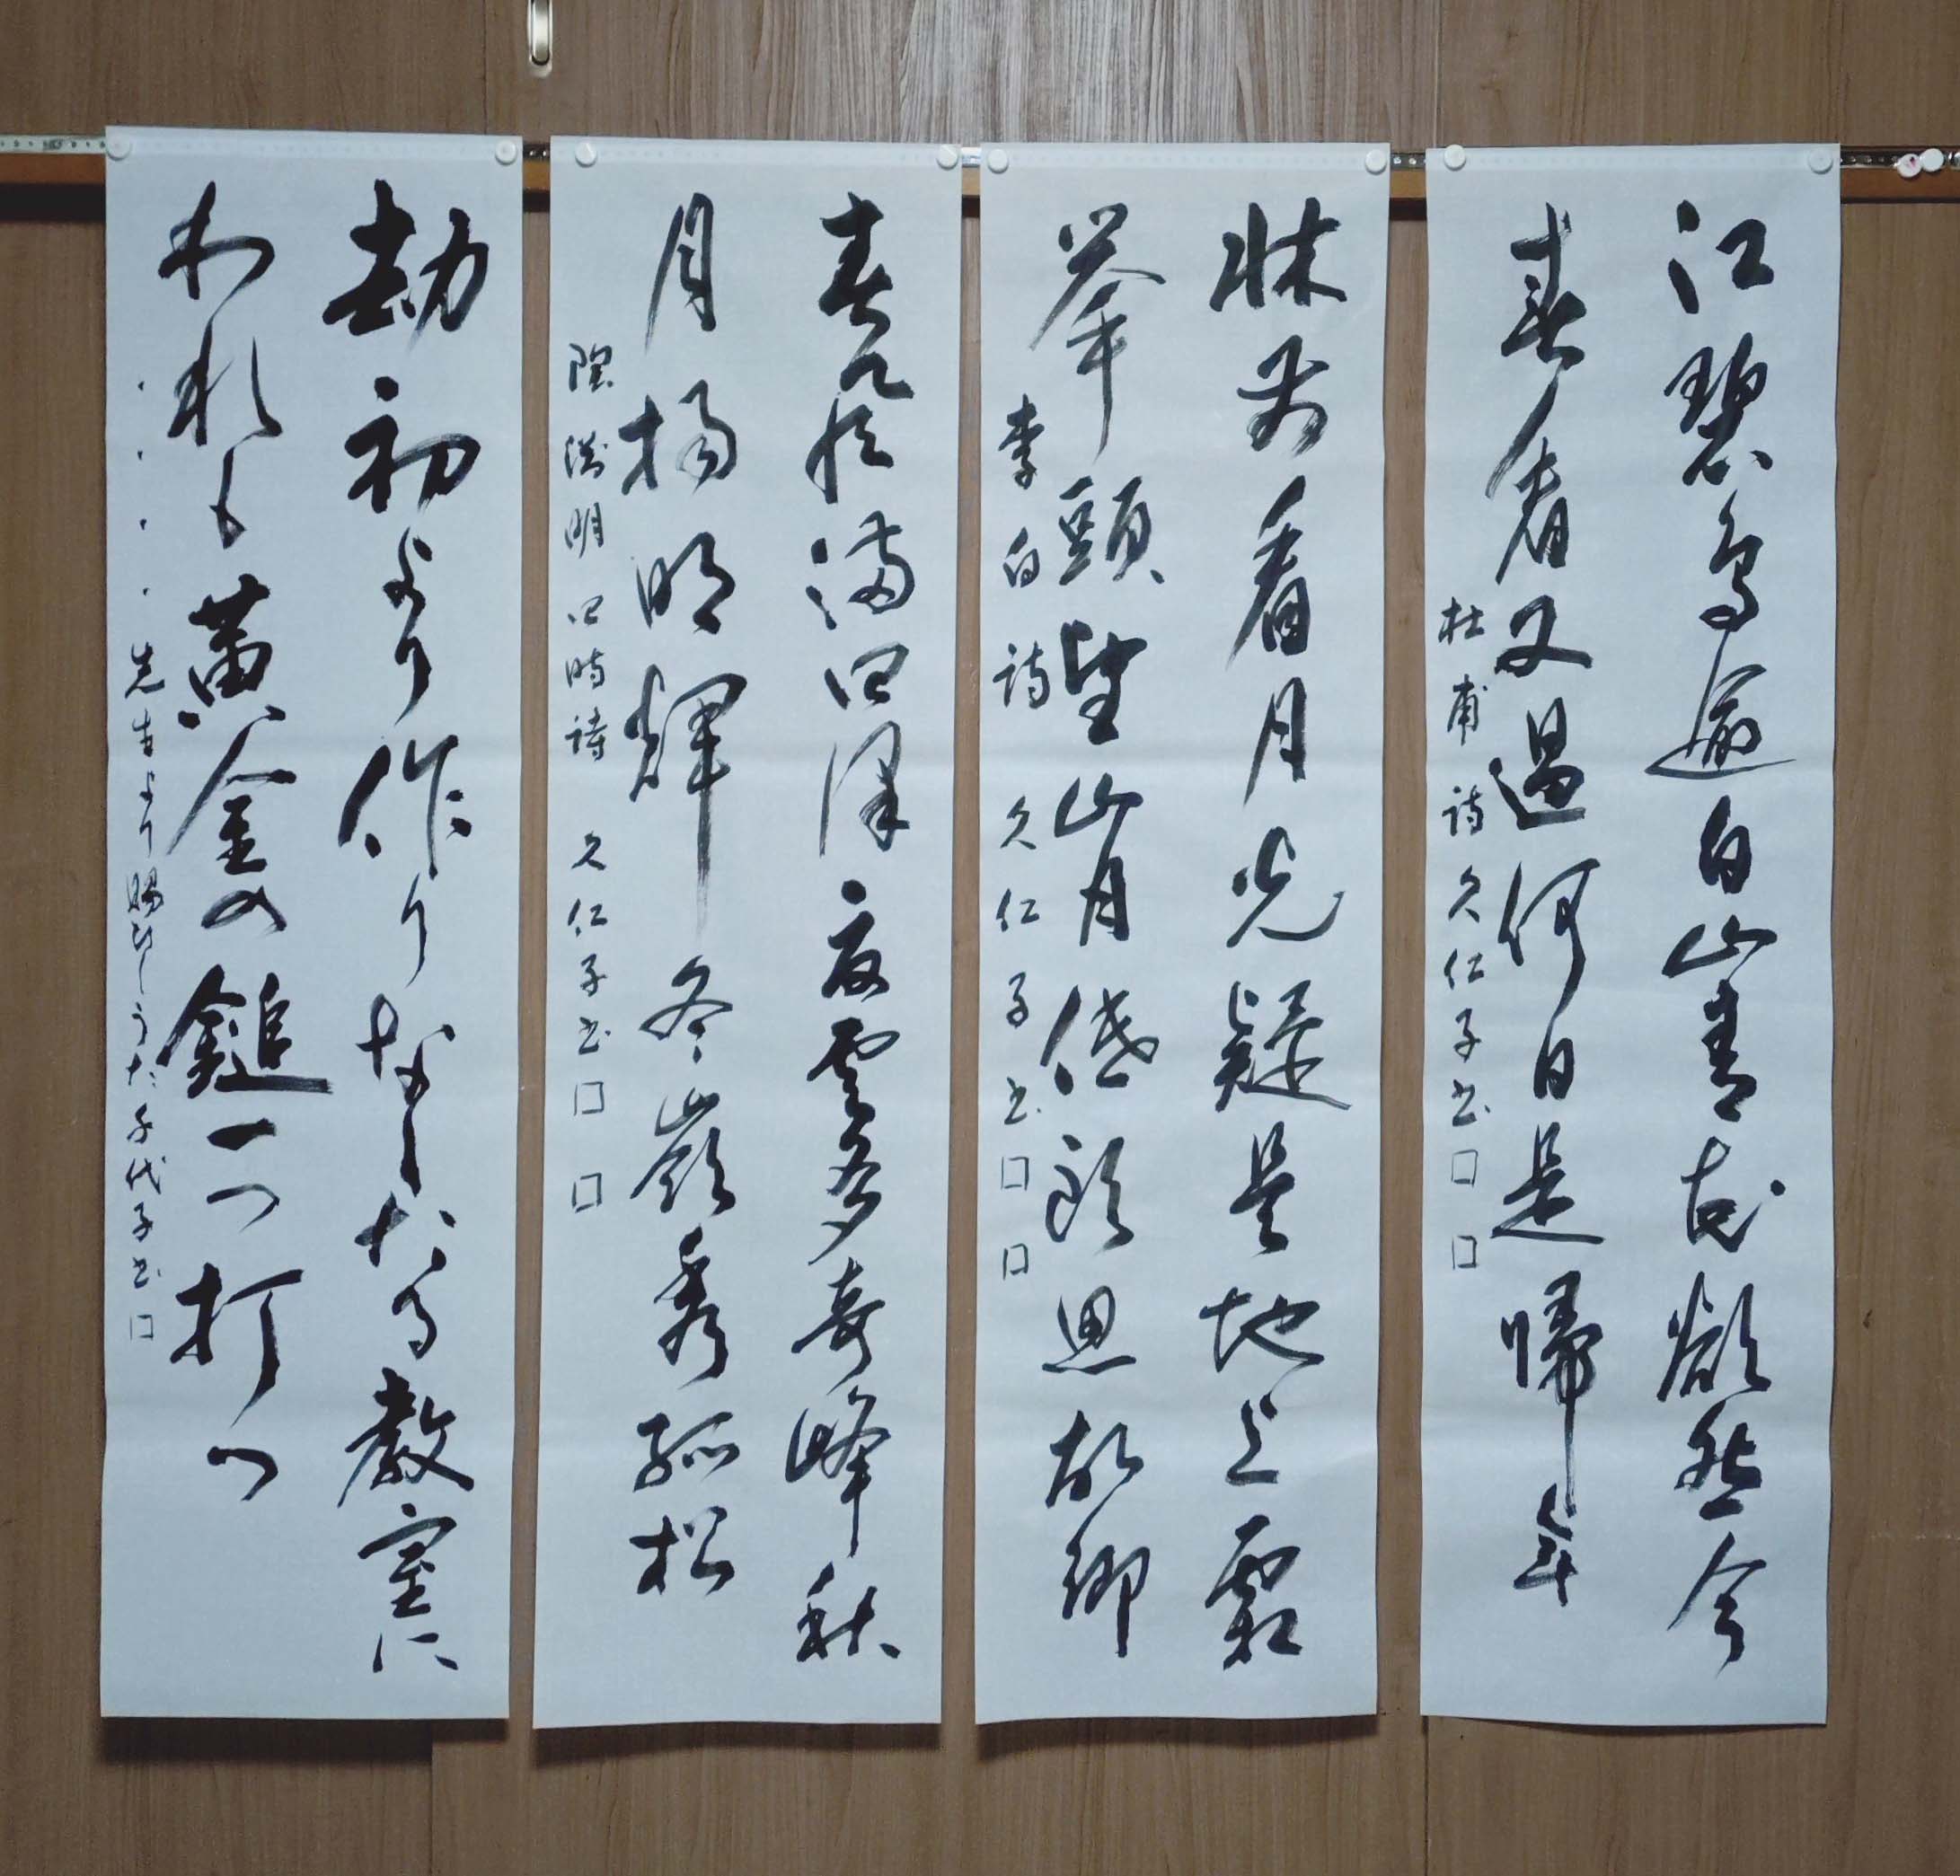 江碧鳥逾白山青花欲然今
春看又過何日是帰年
杜甫詩 久仁子書 □ □
牀前看月光疑是地上霜
挙頭望山月低頭思故郷
李白詩 久仁子書 □ □
春風満四澤夏雲多奇峰秋
月揚明輝冬嶺秀孤松
陶淵明四時詩 久仁子書 □ □
劫初より作りなしたる教室に
われも黄金の鎚一つ打つ
・・・・先生より賜ひしうた 千代子書 □